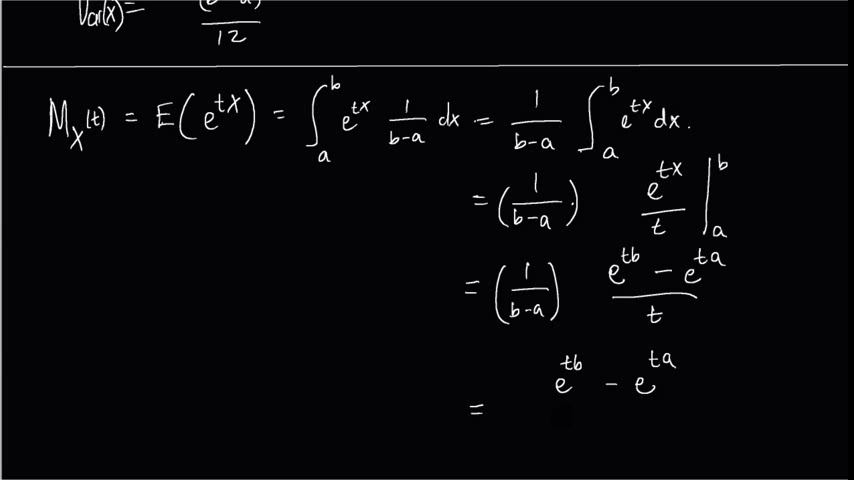 Var(X) = (b-a)² / 12
M_X(t) = E(e^{tX}) = ∫_a^b e^{tx} 1/(b-a) dx = 1/(b-a) ∫_a^b e^{tx} dx.
= (1/(b-a)) · e^{tx}/t |_a^b
= (1/(b-a)) (e^{tb} - e^{ta})/t
= e^{tb} - e^{ta}